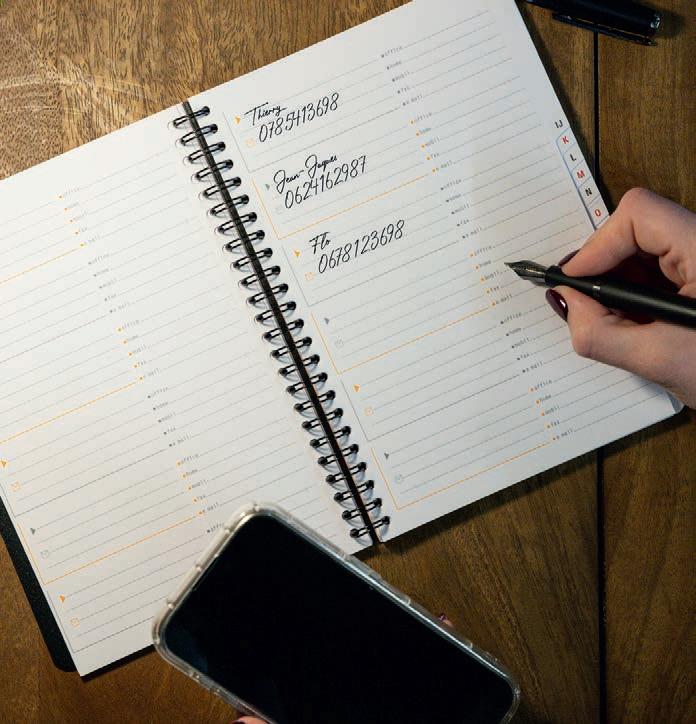 office
home
mobil.
fax
e mail
office
home
mobil.
fax
e mail
office
home
mobil.
fax
e mail
office
home
mobil.
fax
e mail
office
home
mobil.
fax
e mail
Thierry
0785413698
office
home
mobil.
fax
e mail
Jean-Jaques
0624162987
office
home
mobil.
fax
e mail
Flo
0678123698
office
home
mobil.
fax
e mail
office
home
mobil.
fax
e mail
office
home
mobil.
fax
e mail
office
home
mobil.
fax
e mail
IJ
K
L
M
N
O